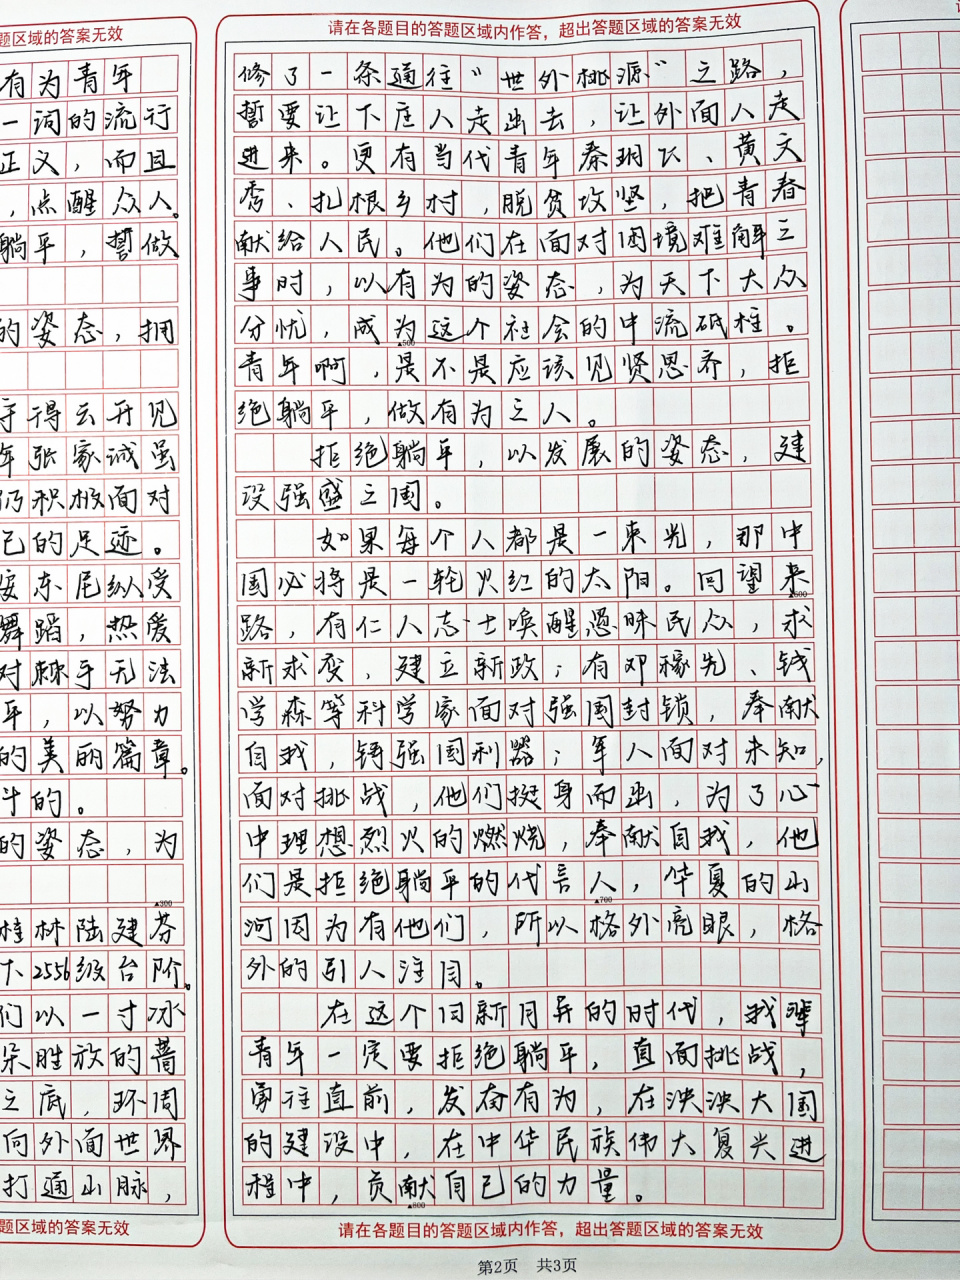 题区域的答案无效
有为青年
一词的流行
正义，而且
，点醒众人。
躺平，誓做
的姿态，拥
得云开见
年张家诚虽
仍积极面对
己的足迹。
安东尼纵受
舞蹈，热爱
对棘手无法
平，以努力
的美丽篇章。
斗的。
的姿态，为
▲300
桂林陆建芬
下2556级台阶
们以一寸冰
朵胜放的蔷
之底，环周
向外面世界
打通山脉，
答题区域的答案无效
请在各题目的答题区域内作答，超出答题区域的答案无效
修了一条通往“世外桃源”之路，
誓要让下庄人走出去，让外面人走
进来。更有当代青年秦玥飞、黄文
秀、扎根乡村，脱贫攻坚，把青春
献给人民。他们在面对困境难解之
事时，以有为的姿态，为天下大众
分忧，成为这个社会的中流砥柱。
▲500
青年啊，是不是应该见贤思齐，拒
绝躺平，做有为之人。
拒绝躺平，以发展的姿态，建
设强盛之国。
如果每个人都是一束光，那中
国必将是一轮火红的太阳。回望来
▲600
路，有仁人志士唤醒愚昧民众，求
新求变，建立新政；有邓稼先、钱
学森等科学家面对强国封锁，奉献
自我，铸强国利器；军人面对未知，
面对挑战，他们挺身而出，为了心
中理想烈火的燃烧，奉献自我，他
们是拒绝躺平的代言人，华夏的山
▲700
河因为有他们，所以格外亮眼，格
外的引人注目。
在这个日新月异的时代，我辈
青年一定要拒绝躺平，直面挑战，
勇往直前，发奋有为，在泱泱大国
的建设中，在中华民族伟大复兴进
程中，贡献自己的力量。
▲800
请在各题目的答题区域内作答，超出答题区域的答案无效
第2页 共3页